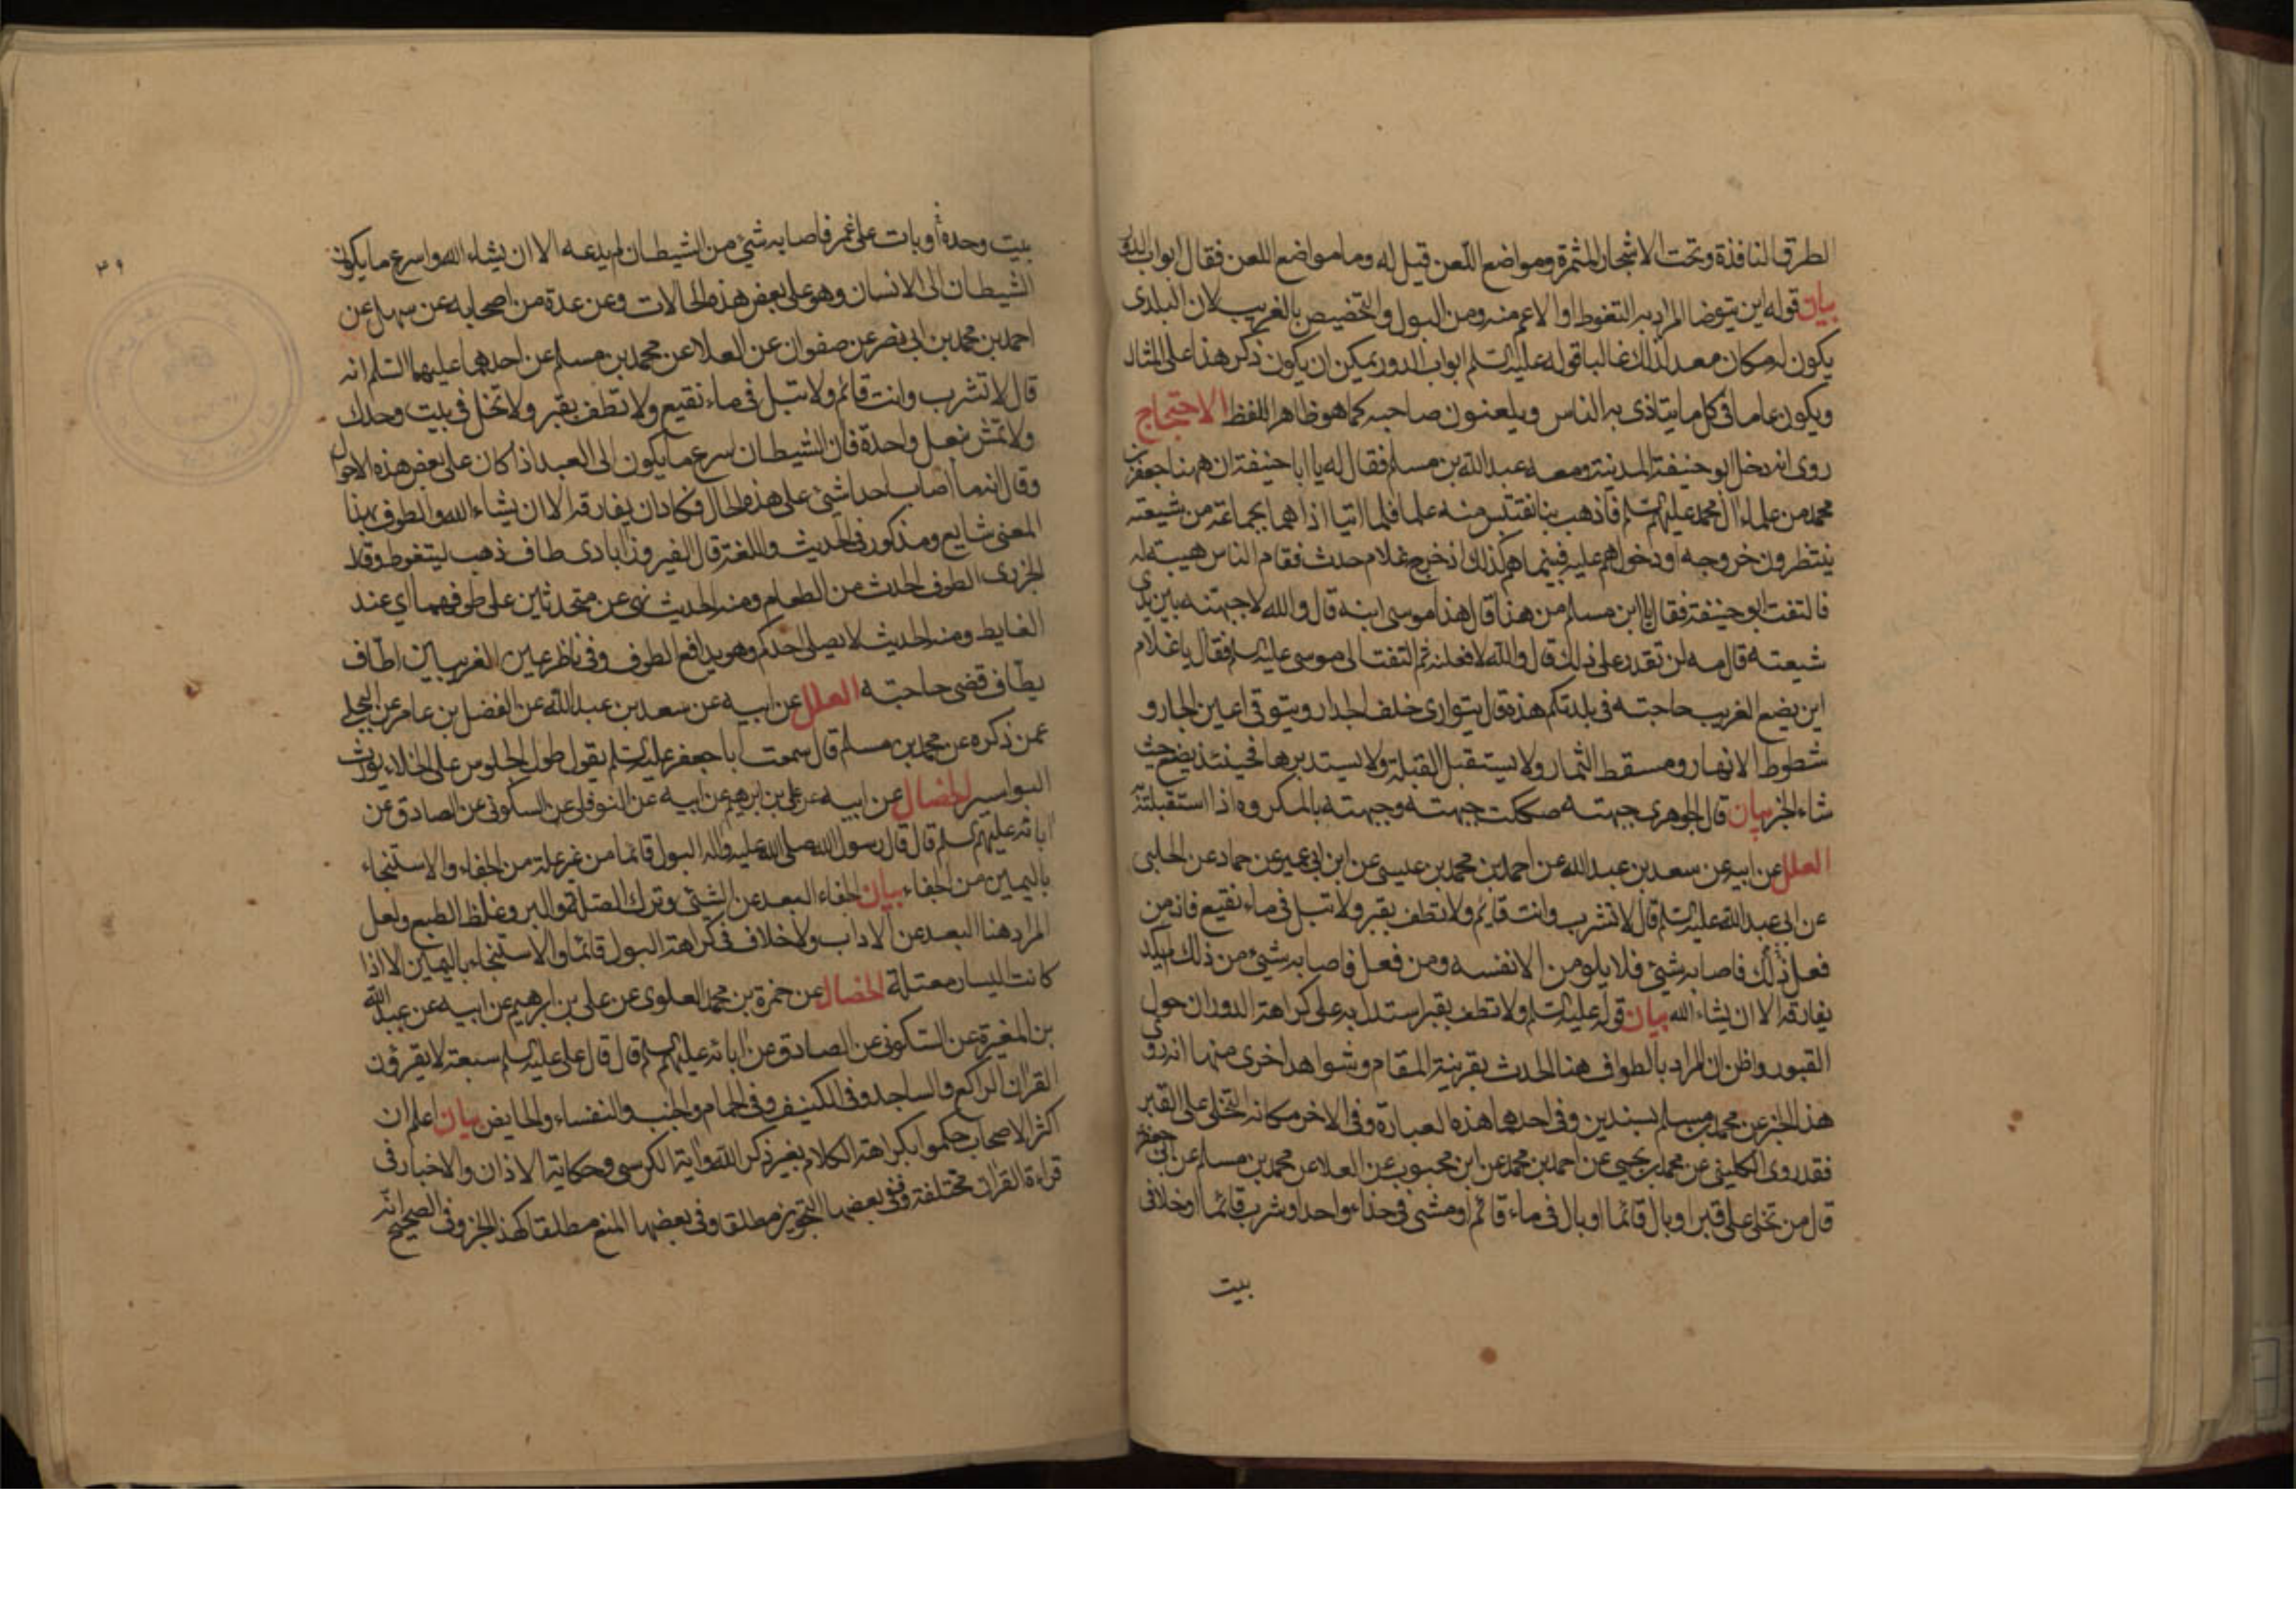 الطرق النافذة وتحت الاشجار المثمرة ومواضع اللعن قيل له وما مواضع اللعن فقال ابواب الدور
بيان قوله اين يتوضا المراد به التغوط او الاعم منه ومن البول والتخصيص بالغريب لان البلدى
يكون له مكان معد لذلك غالبا قوله عليه السلم ابواب الدور يمكن ان يكون ذكر هذا على المثال
ويكون عاما فى كل ما يتاذى به الناس ويلعنون صاحبه كما هو ظاهر اللفظ الاحتجاج
روى انه دخل ابو حنيفة المدينة ومعه عبد الله بن مسلم فقال له يا ابا حنيفة ان ههنا جعفر بن
محمد من علماء ال محمد عليهم السلم فاذهب بنا نقتبس منه علما فلما اتيا اذا هما بجماعة من شيعته
ينتظرون خروجه او دخولهم عليه فبينما هم كذلك اذ خرج غلام حدث فقام الناس هيبة له
فالتفت ابو حنيفة فقال يا ابن مسلم من هذا قال هذا موسى ابنه قال والله لاجبهنه بين يدى
شيعته قال مه لن تقدر على ذلك قال والله لافعلنه ثم التفت الى موسى عليه السلم فقال يا غلام
اين يضع الغريب حاجته فى بلدتكم هذه قال يتوارى خلف الجدار ويتوقى اعين الجار و
شطوط الانهار ومسقط الثمار ولا يستقبل القبلة ولا يستدبرها فحينئذ يضع حيث
شاء الخبر بيان قال الجوهرى جبهته صككت جبهته وجبهته بالمكروه اذا استقبلته
العلل عن ابيه عن سعد بن عبد الله عن احمد بن محمد بن عيسى عن ابن ابى عمير عن حماد عن الحلبى
عن ابى عبد الله عليه السلم قال لا تشرب وانت قايم ولا تطف بقبر ولا تبل فى ماء نقيع فانه من
فعل ذلك فاصابه شئ فلا يلومن الا نفسه ومن فعل فاصابه شئ من ذلك لم يكد
يفارقه الا ان يشاء الله بيان قوله عليه السلم ولا تطف بقبر استدل به على كراهة الدوران حول
القبور واظن ان المراد بالطواف هنا الحدث بقرينة المقام وشواهد اخرى منها انه روى
هذا الخبر عن محمد بن مسلم بسندين وفى احدهما هذه العبارة وفى الاخر مكانه التخلى على القبر
فقد روى الكلينى عن محمد بن يحيى عن احمد بن محمد عن ابن محبوب عن العلا عن محمد بن مسلم عن ابى جعفر
قال من تخلى على قبر او بال قائما او بال فى ماء قائم او مشى فى حذاء واحد او شرب قائما او خلا فى
بيت
٣٩
بيت وحده أو بات على غمر فاصابه شئ من الشيطان لم يدعه الا ان يشاء الله واسرع ما يكون
الشيطان الى الانسان وهو على بعض هذه الحالات وعن عدة من اصحابه عن سهل عن
احمد بن محمد بن ابى نصر عن صفوان عن العلا عن محمد بن مسلم عن احدهما عليهما السلم انه
قال لا تشرب وانت قائم ولا تبل فى ماء نقيع ولا تطف بقبر ولا تخل فى بيت وحدك
ولا تمش بنعل واحدة فان الشيطان اسرع ما يكون الى العبد اذا كان على بعض هذه الاحوال
وقال انه ما أصاب احدا شئ على هذه الحال فكاد ان يفارقه الا ان يشاء الله والطوف بهذا
المعنى شايع ومذكور فى الحديث واللغة قال الفيروزابادى طاف ذهب ليتغوط وقال
الجزرى الطوف الحدث من الطعام ومنه الحديث نهى عن متحدثين على طوفهما اي عند
الغايط ومنه الحديث لا يصلى احدكم وهو يدافع الطوف وفى ناظر عين الغريبين اطاف
يطاف قضى حاجته العلل عن ابيه عن سعد بن عبد الله عن الفضل بن عامر عن البجلى
عمن ذكره عن محمد بن مسلم قال سمعت ابا جعفر عليه السلم يقول طول الجلوس على الخلاء يورث
البواسير الخصال عن ابيه عن على بن ابرهيم عن ابيه عن النوفلى عن السكونى عن الصادق عن
ابائه عليهم السلم قال قال رسول الله صلى الله عليه واله البول قائما من غير علة من الجفاء والاستنجاء
باليمين من الجفاء بيان الجفاء البعد عن الشئ وترك الصلة والبر وغلظ الطبع ولعل
المراد هنا البعد عن الاداب ولا خلاف فى كراهة البول قائما والاستنجاء باليمين الا اذا
كانت اليسار معتلة الخصال عن حمزة بن محمد العلوى عن على بن ابرهيم عن ابيه عن عبد الله
بن المغيرة عن السكونى عن الصادق عن ابائه عليهم السلم قال قال على عليه السلم سبعة لا يقرؤن
القران الراكع والساجد وفى الكنيف وفى الحمام والجنب والنفساء والحايض بيان اعلم ان
اكثر الاصحاب حكموا بكراهة الكلام بغير ذكر الله واية الكرسى وحكاية الاذان والاخبار فى
قراءة القران مختلفة ففى بعضها التجويز مطلقا وفى بعضها المنع مطلقا كهذا الخبر وفى الصحيح انه